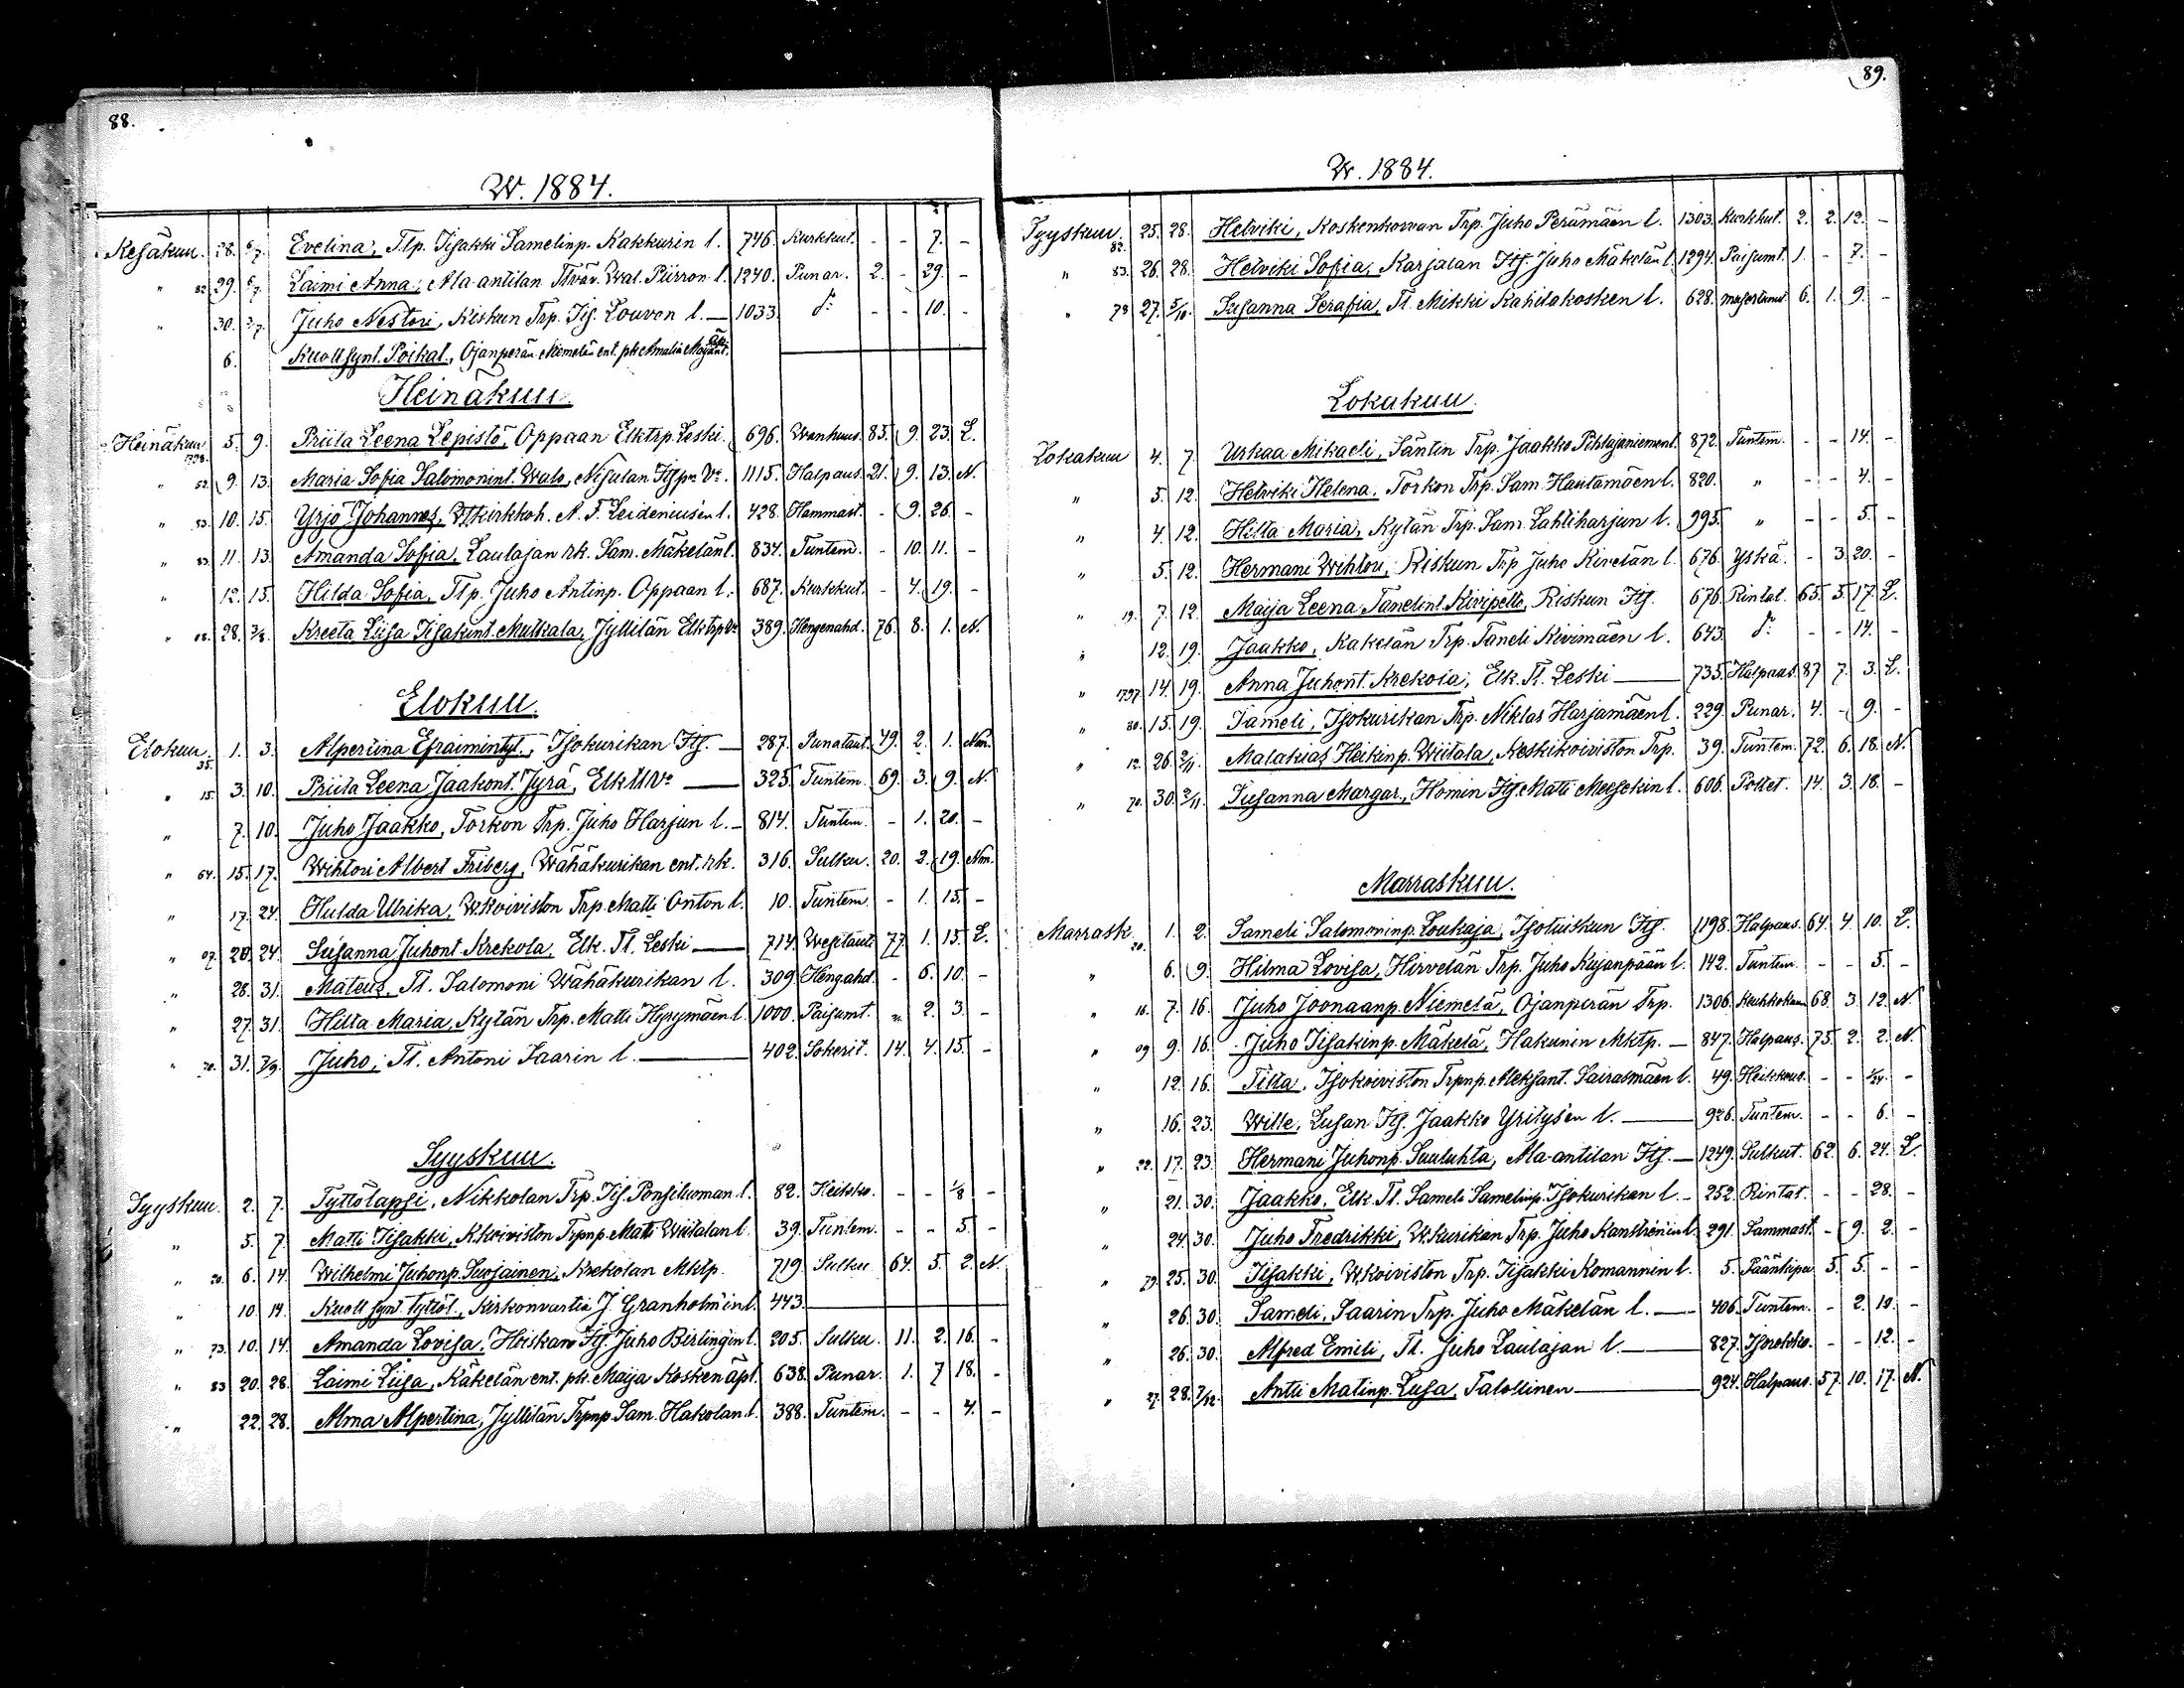 88.
W. 1884.
Kesäkuu. 28. 6/7. Evelina, Tlp. Iisakki Samelinp. Kakkurin l. 746. Kurkkut. - - 7. -
" 82 29. 6/7. Laimi Anna, Ala-antilan Wal. Piirron l. 1240. Punar. 2. - 29. -
" 30. Juho Nestori, Riskun Trp. Iis. Louvon l. — 1033. d:o - - 10. -
6. Kuoll. synt. Poikal., Ojanperän Niemelän ent. pk. Amalia
Heinäkuu.
Heinäkuu 1798. 5. 9. Priita Leena Lepistö, Oppaan Elktrp. Leski. 696. Wanhuus. 85. 9. 23. L.
" 52. 9. 13. Maria Sofia Salomonint. Walo, Nisulan V:o 1115. Halpaus. 21. 9. 13. N.
" 83. 10. 15. Yrjö Johannes, Wkirkkoh. A. F. Leideniusen l. 428. Hammast. - 9. 26. -
" 83. 11. 13. Amanda Sofia, Laulajan rk. Sam. Mäkelän l. 834. Tuntem. - 10. 11. -
" 12. 15. Hilda Sofia, Tlp. Juho Antinp. Oppaan l. 687. Kurkkut. - 4. 19. -
" 08. 28. 3/8. Kreeta Liisa Iisakint. Mutkala, Jyllilän Elktrp V:o 389. Hengenahd. 76. 8. 1. N.
Elokuu.
Elokuu. 35. 1. 3. Alperiina Efraimintyt., Isokurikan Its. — 287. Punataut. 49. 2. 1. Nm.
" 15. 3. 10. Priita Leena Jaakont. Jyrä, Elk tl V:o — 325. Tuntem. 69. 3. 9. N.
" 7. 10. Juho Jaakko, Torkon Trp. Juho Harjun l. - 814. Tuntem. - 1. 20. -
" 64. 15. 17. Wihtori Albert Friberg, Wähäkurikan ent. rk. 316. Sulku. 20. 2. 19. Nm.
" 17. 24. Hulda Ulrika, W.koiviston Trp. Matti Onton l. 10. Tuntem. - 1. 15. -
" 07. 20. 24. Susanna Juhont. Krekola, Elk. Tl. Leski — 714. Wesitauti 77. 1. 15. L.
" 28. 31. Mateus, Tl. Salomoni Wähäkurikan l. 309. Heng.ahd. - 6. 10. -
" 27. 31. Hilta Maria, Kylän Trp. Matti Hyrymäen l. 1000. Paisumt. " 2. 3. -
" 70. 31. 7/9. Juho, Tl. Antoni Saarin l. — 402. Sokerit. 14. 4. 15. -
Syyskuu.
Syyskuu. 2. 7. Tyttölapsi, Nikkolan Trp. Iis. Ponsiluoman l. 82. Heikko. - - 1/8 -
" 5. 7. Matti Iisakki, K.koiviston Trpnp. Matti Wiitalan l. 39. Tuntem. - - 5. -
" 20. 6. 14. Wilhelmi Juhonp. Luojainen, Krekolan Mktp. 719. Sulku 64. 5. 2. N
" 10. 14. Kuoll. synt. Tyttöl., Kirkonvartia J. Granholmin l. 443. —
" 73. 10. 14. Amanda Lovisa, Hoiskan Its. Juho Birlingin l. 205. Sulku. 11. 2. 16. -
" 83 20. 28. Laimi Liisa, Käkelän ent. pk. Maija Kosken äpl. 638. Punar. 1. 7 18. -
" 22. 28. Alma Alpertina, Jyllilän Trpnp. Sam. Hakolan l. 388. Tuntem. - - 4. -
89.
W. 1884.
Syyskuu. 82. 25. 28. Helviki, Koskenkorwan Trp. Juho Perämäen l. 1303. Kurkkut. 2. 2. 12. -
" 83. 26. 28. Helviki Sofia, Karjalan Its. Juho Mäkelän l. 1294. Paisumt. 1. - 7. -
" 78 27. 5/10. Susanna Serafia, Tl. Mikki Kahilakosken l. 628. 6. 1. 9. -
Lokakuu.
Lokakuu 4. 7. Urkaa Mikaeli, Säntin Trp. Jaakko Pihlajaniemen l. 872. Tuntem. - - 14. -
" 5. 12. Helviki Helena, Torkon Trp. Sam. Hautamäen l. 820. " - - 4. -
" 4. 12. Hilta Maria, Kylän Trp. Sam. Lahtiharjun l. 995. " - - 5. -
" 5. 12. Hermani Wihtori, Riskun Trp Juho Kivelän l. 676. Yskä. - 3. 20. -
" 19. 7. 12. Maija Leena Tanelint. Kivipelto, Riskun Its. 676. Rintat. 65. 5. 17. L.
" 12. 19. Jaakko, Kakelän Trp. Taneli Kivimäen l. 643. d:o - - 14. -
" 1797. 14. 19. Anna Juhont. Krekola, Elk. Tl. Leski — 735. Halpaus. 87 7. 3. L.
" 80. 15. 19. Sameli, Isokurikan Trp. Niklas Harjamäen l. 229. Punar. 4. - 9. -
" 12. 26. 2/11. Malakias Heikinp. Wiitala, Keskikoiviston Trp. 39. Tuntem. 72. 6. 18. N.
" 70. 30. 2/11. Susanna Margar., Homin Its. Matti Meesekin l. 606. Poltet. 14. 3. 18. -
Marraskuu.
Marrask. 20. 1. 2. Sameli Salomoninp. Loukaja, Isoluiskun Its. 1198. Halpaus. 64. 4. 10. L.
" 6. 9. Hilma Lovisa, Hirvelän Trp. Juho Kujanpään l. 142. Tuntem. - - 5. -
" 16. 7. 16. Juho Joonaanp. Niemelä, Ojanperän Trp. 1306. Keuhkokuu 68. 3. 12. N.
" 09 9. 16. Juho Iisakinp. Mäkelä, Hakunin Mktp. — 847. Halpaus. 75. 2. 2. N.
" 12. 16. Tilta, Isokoiviston Trpnp. Aleksant. Sairasmäen l. 49. Heikkous. - - 1/24. -
" 16. 23. Wille, Lusan Its. Jaakko Yritysen l. — 926. Tuntem. - - 6. -
" 22. 17. 23. Hermani Juhonp. Suuluhta, Ala-antilan Its. — 1249. Sulkut. 62. 6. 24. L.
" 21. 30. Jaakko, Elk. Tl. Sameli Samelinp. Isokurikan l. - 252. Rintat. - - 28. -
" 24. 30. Juho Fredrikki, W.kurikan Trp. Juho Kanströmin l. 291. Sammast. - 9. 2. -
" 79. 25. 30. Iisakki, W.koiviston Trp. Iisakki Komannin l. 5. Pääntipu 5. 5. - -
" 26. 30. Sameli, Saarin Trp. Juho Mäkelän l. — 406. Tuntem. - 2. 10. -
" 26. 30. Alfred Emili, Tl. Juho Laulajan l. — 827. - - 12. -
" 27. 28. 7/12. Antti Matinp. Lusa, Talollinen — 924. Halpaus. 57. 10. 17. N.